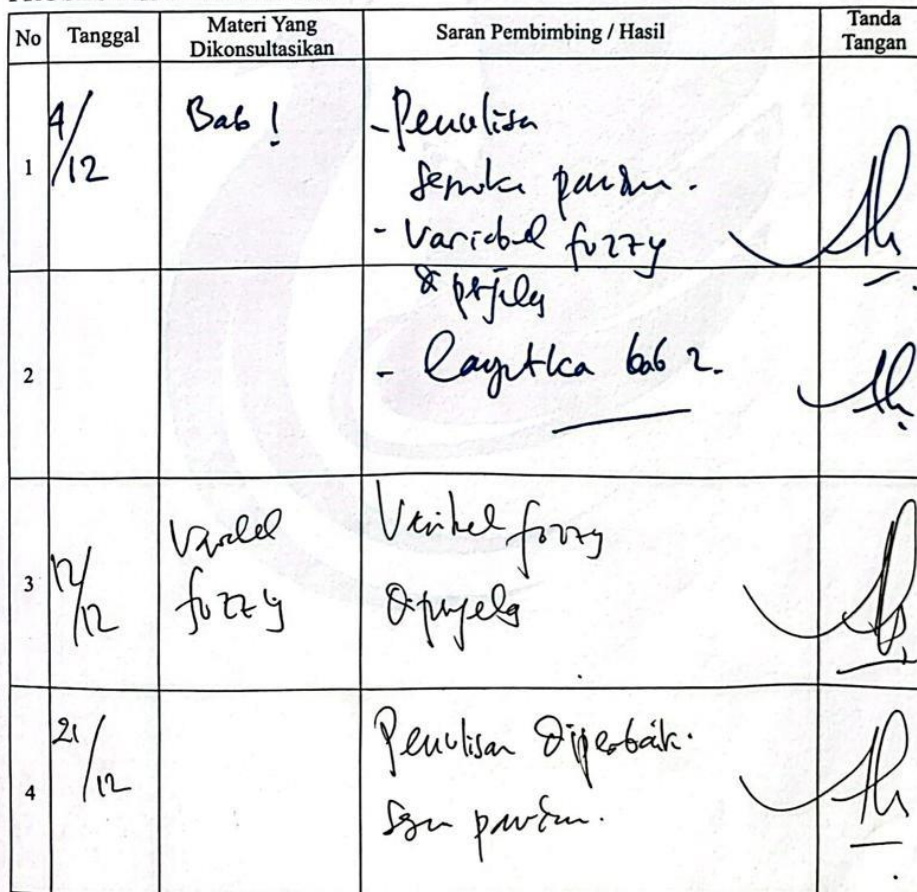 No Tanggal Materi Yang Dikonsultasikan Saran Pembimbing / Hasil Tanda Tangan
1 4/12 Bab 1 - Penulisan
panduan.
- Variabel fuzzy
2 diperjelas
- Lanjutkan bab 2.
3 12/12 Variabel fuzzy Variabel fuzzy
diperjelas
4 21/12 Penulisan diperbaiki
panduan.